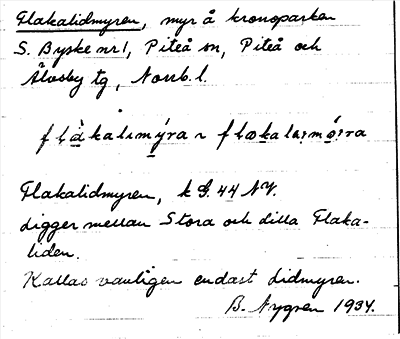 Flakalidmyren, myr å kronoparken
S. Byske nr 1, Piteå sn, Piteå och
Älvsby tg, Norrb. l.
flàkalımýra ~ flakalımýra
Flakalidmyren, k G. 44 NV.
ligger mellan Stora och Lilla Flaka-
liden.
Kallas vanligen endast Lidmyren.
B. Nygren 1934.